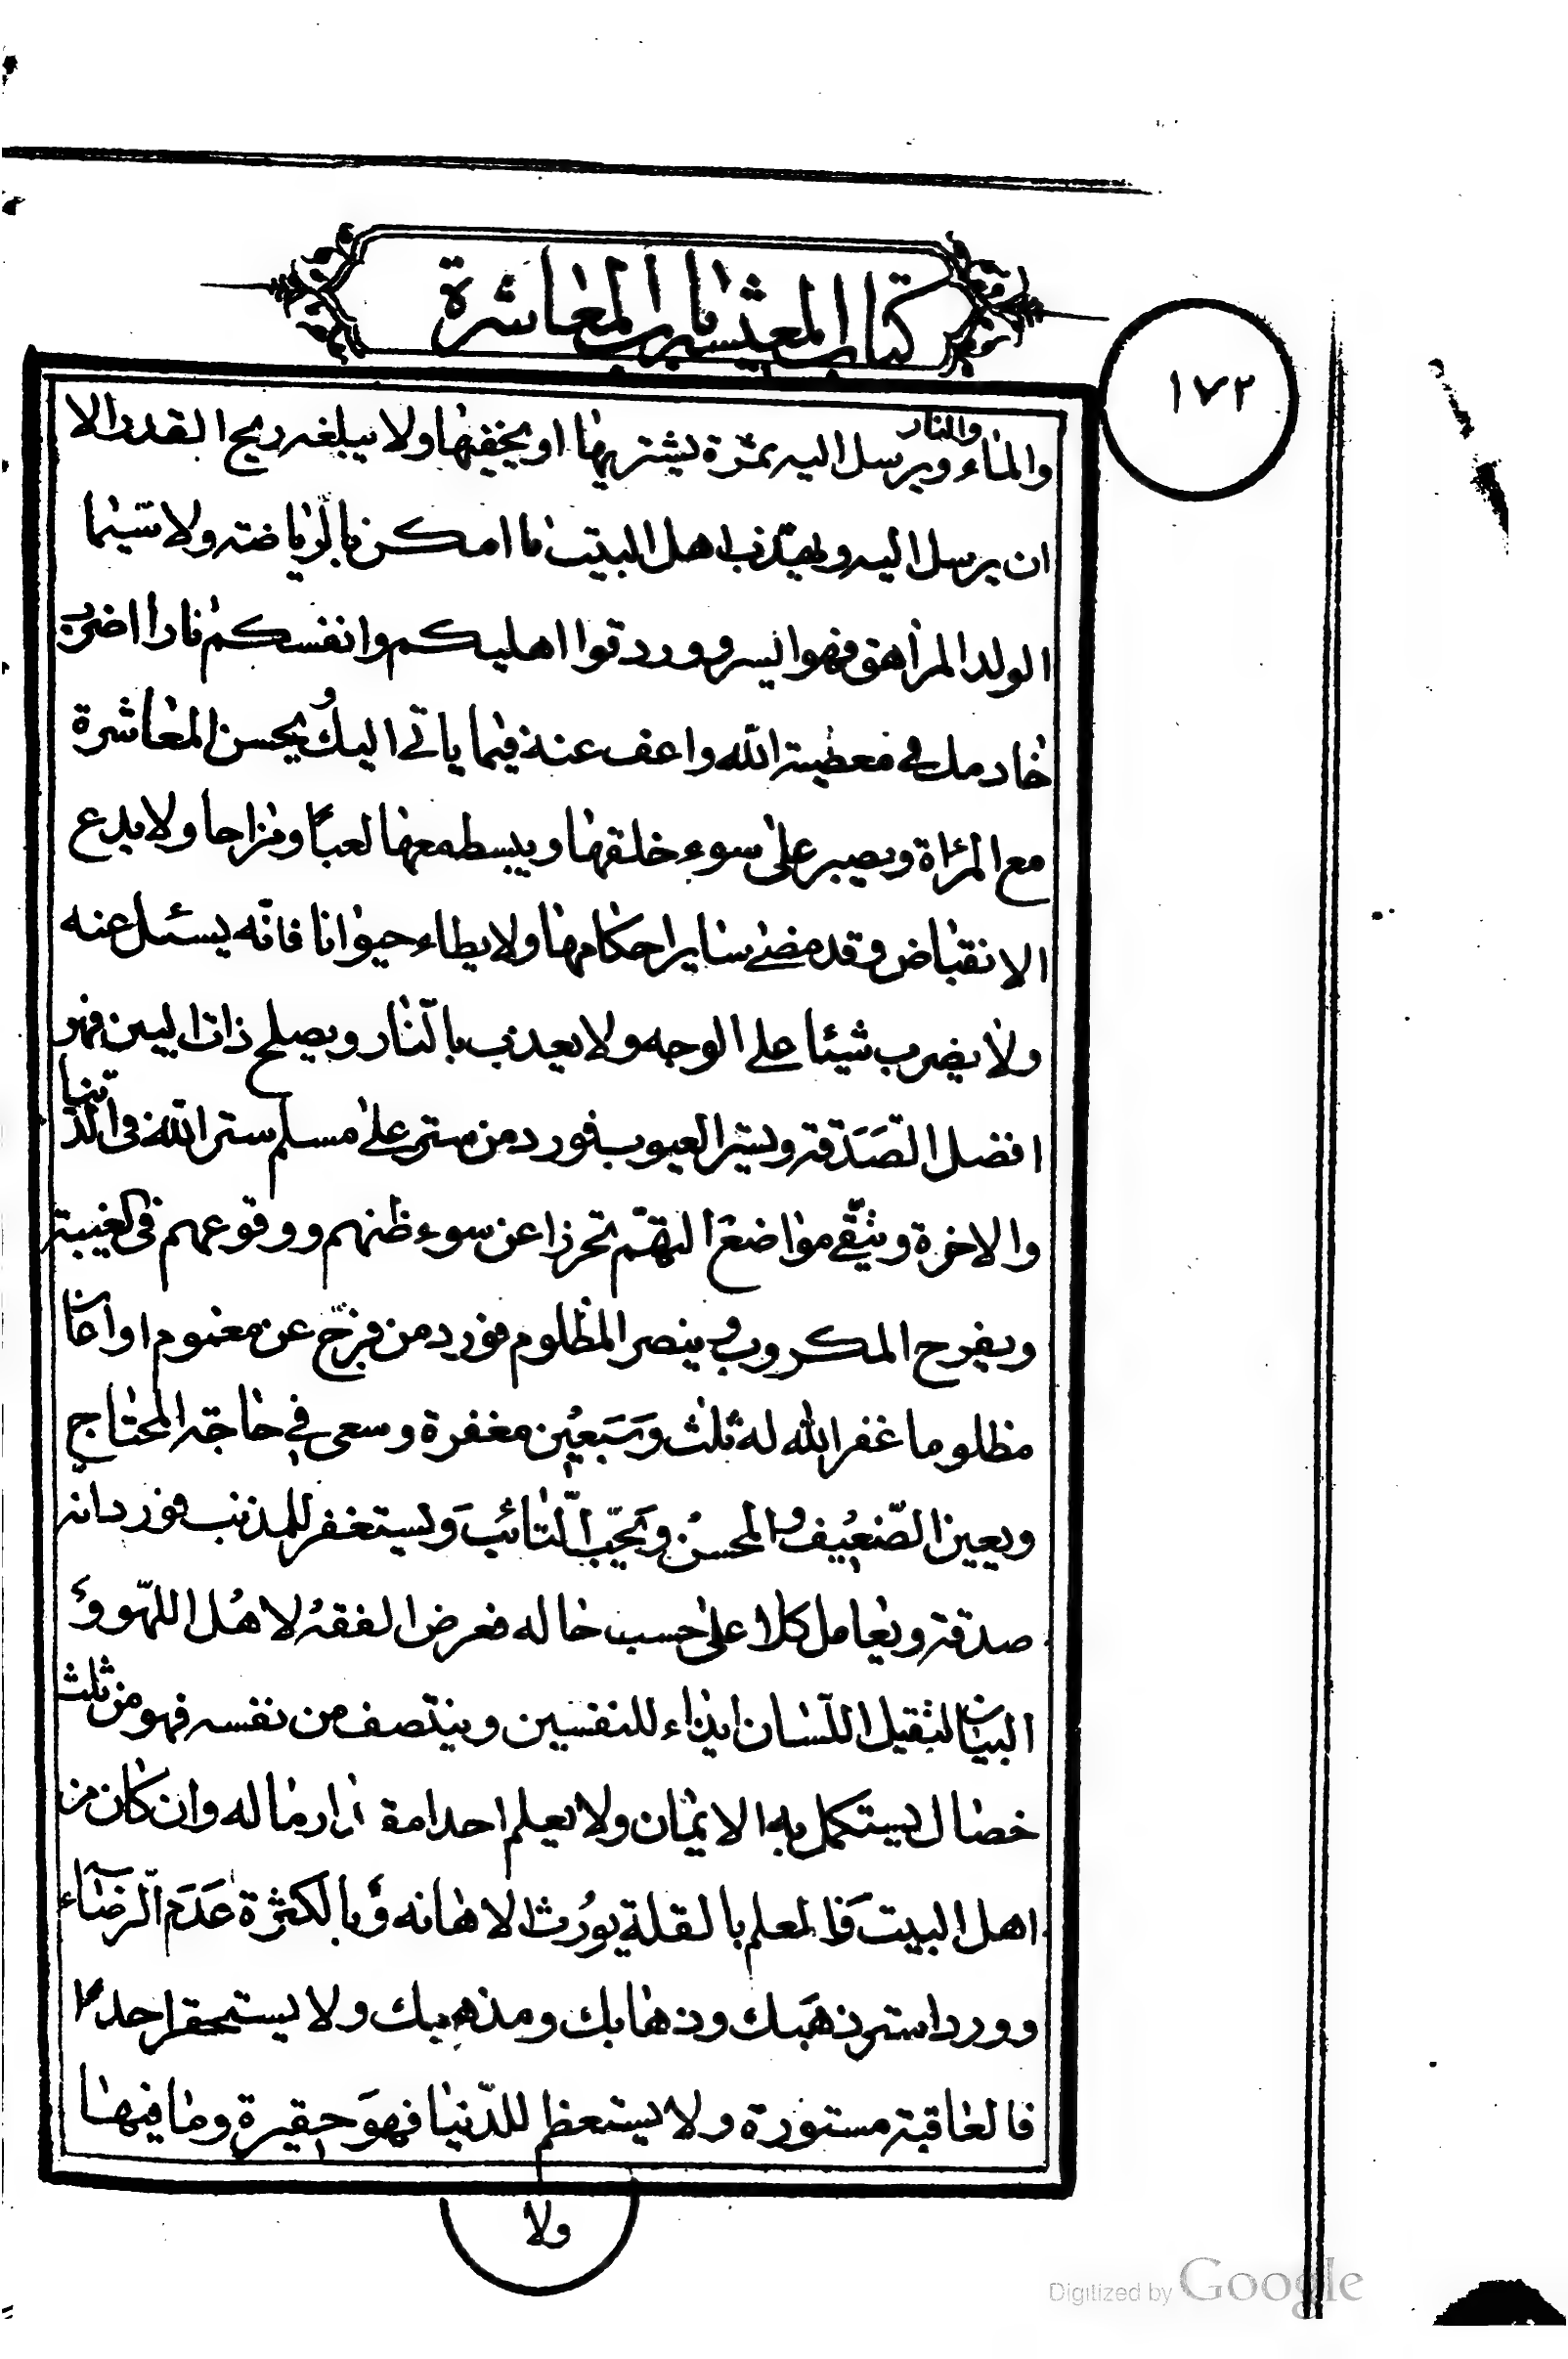 كتاب المعيشة باب المعاشرة
١٧٢
والماء والنار ويرسل اليه ثمرة يشتريها او يخفيها ولا يبلغه ريح القدر الا
ان يرسل اليه ويهذب اهل البيت ما امكن بالرياضة ولا سيما
الولد المراهق فهو ايسر وورد قوا اهليكم وانفسكم نارا اضرب
خادمك في معصية الله واعف عنه فيما ياتي اليك ويحسن المعاشرة
مع المرأة ويصبر على سوء خلقها ويبسط معها لعبا ومزاحا ولا يدع
الانقباض وقد مضى ساير احكامها ولا يطاء حيوانا فانه يسئل عنه
ولا يضرب شيئا على الوجه ولا يعذب بالنار ويصلح ذات البين فهو
افضل الصدقة ويستر العيوب فورد من ستر على مسلم ستر الله في الدنيا
والاخرة ويتقي مواضع التهم تحرزا عن سوء ظنهم ووقوعهم في الغيبة
ويفرح المكروب وينصر المظلوم فورد من فرج عن مغموم او اعان
مظلوما غفر الله له ثلث وسبعين مغفرة وسعى في حاجة المحتاج
ويعين الضعيف والمحسن ويحب التائب ويستغفر للمذنب فورد انه
صدقة ويعامل كلا على حسب حاله فعرض الفقه لاهل اللهو و
البيان لثقيل اللسان ايذاء للنفسين وينتصف من نفسه فهو من ثلث
خصال يستكمل به الايمان ولا يعلم احدا مقدار ماله وان كان من
اهل البيت فالمعلم بالقلة يورث الاهانه وبالكثرة عدم الرضاء
وورد استر ذهبك وذهابك ومذهبك ولا يستحقر احدا
فالعاقبة مستورة ولا يستعظم للدنيا فهو حقيرة وما فيها
ولا
Digitized by Google